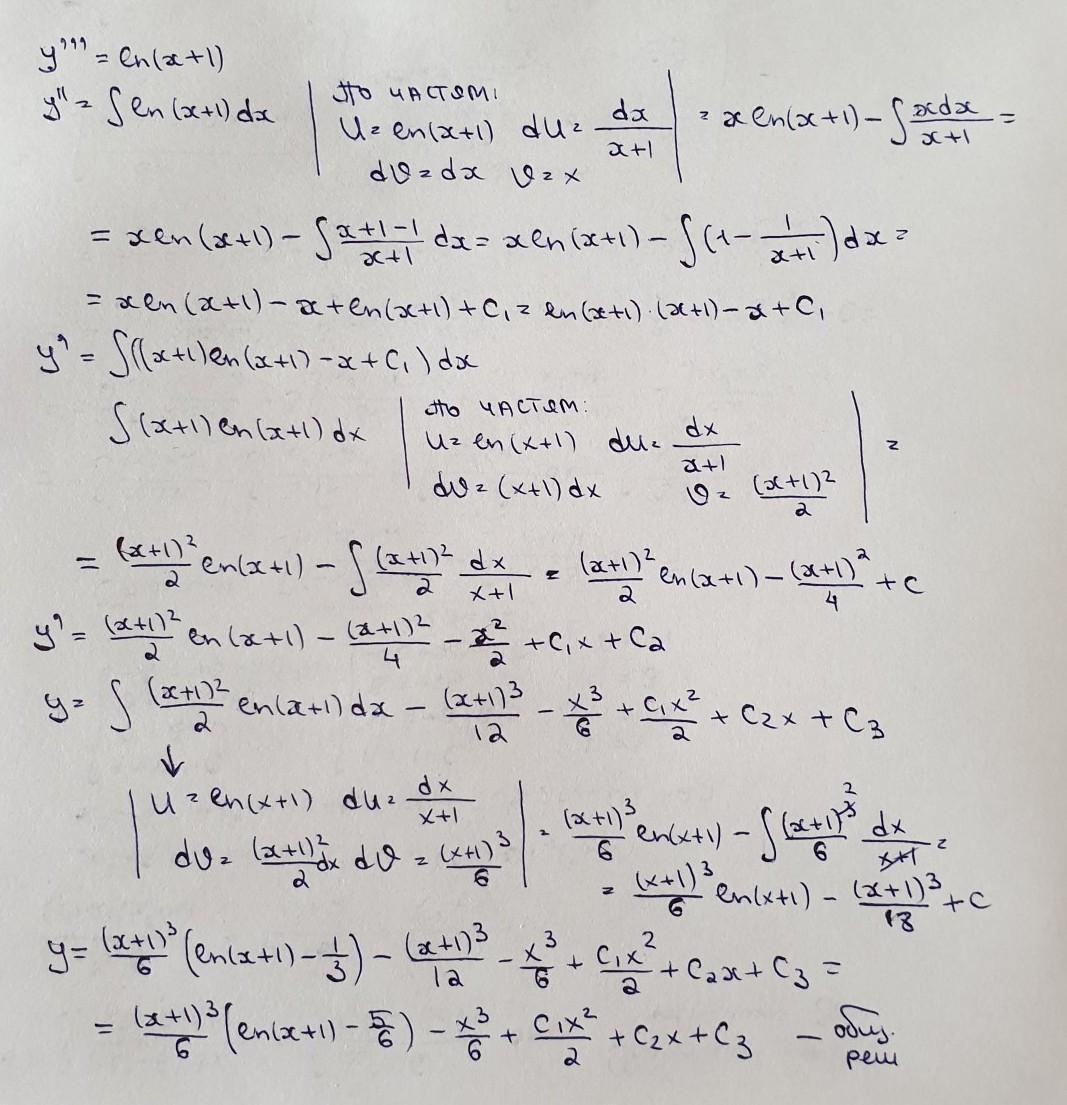 y''' = ln(x+1)
y'' = ∫ ln(x+1) dx | По частям: U = ln(x+1) dU = dx/(x+1) dϑ = dx ϑ = x | = x ln(x+1) − ∫ xdx/(x+1) =
= x ln(x+1) − ∫ (x+1−1)/(x+1) dx = x ln(x+1) − ∫ (1 − 1/(x+1)) dx =
= x ln(x+1) − x + ln(x+1) + C₁ = ln(x+1)·(x+1) − x + C₁
y' = ∫((x+1)ln(x+1) − x + C₁) dx
∫ (x+1) ln(x+1) dx | По частям: U = ln(x+1) du = dx/(x+1) dϑ = (x+1) dx ϑ = (x+1)²/2 | =
= (x+1)²/2 ln(x+1) − ∫ (x+1)²/2 dx/(x+1) = (x+1)²/2 ln(x+1) − (x+1)²/4 + C
y' = (x+1)²/2 ln(x+1) − (x+1)²/4 − x²/2 + C₁x + C₂
y = ∫ (x+1)²/2 ln(x+1) dx − (x+1)³/12 − x³/6 + C₁x²/2 + C₂x + C₃
↓
| U = ln(x+1) du = dx/(x+1) dϑ = (x+1)²/2 dx dϑ = (x+1)³/6 | = (x+1)³/6 ln(x+1) − ∫ (x+1)²/6 dx =
= (x+1)³/6 ln(x+1) − (x+1)³/18 + C
y = (x+1)³/6 (ln(x+1) − 1/3) − (x+1)³/12 − x³/6 + C₁x²/2 + C₂x + C₃ =
= (x+1)³/6 (ln(x+1) − 5/6) − x³/6 + C₁x²/2 + C₂x + C₃ — общ.
реш